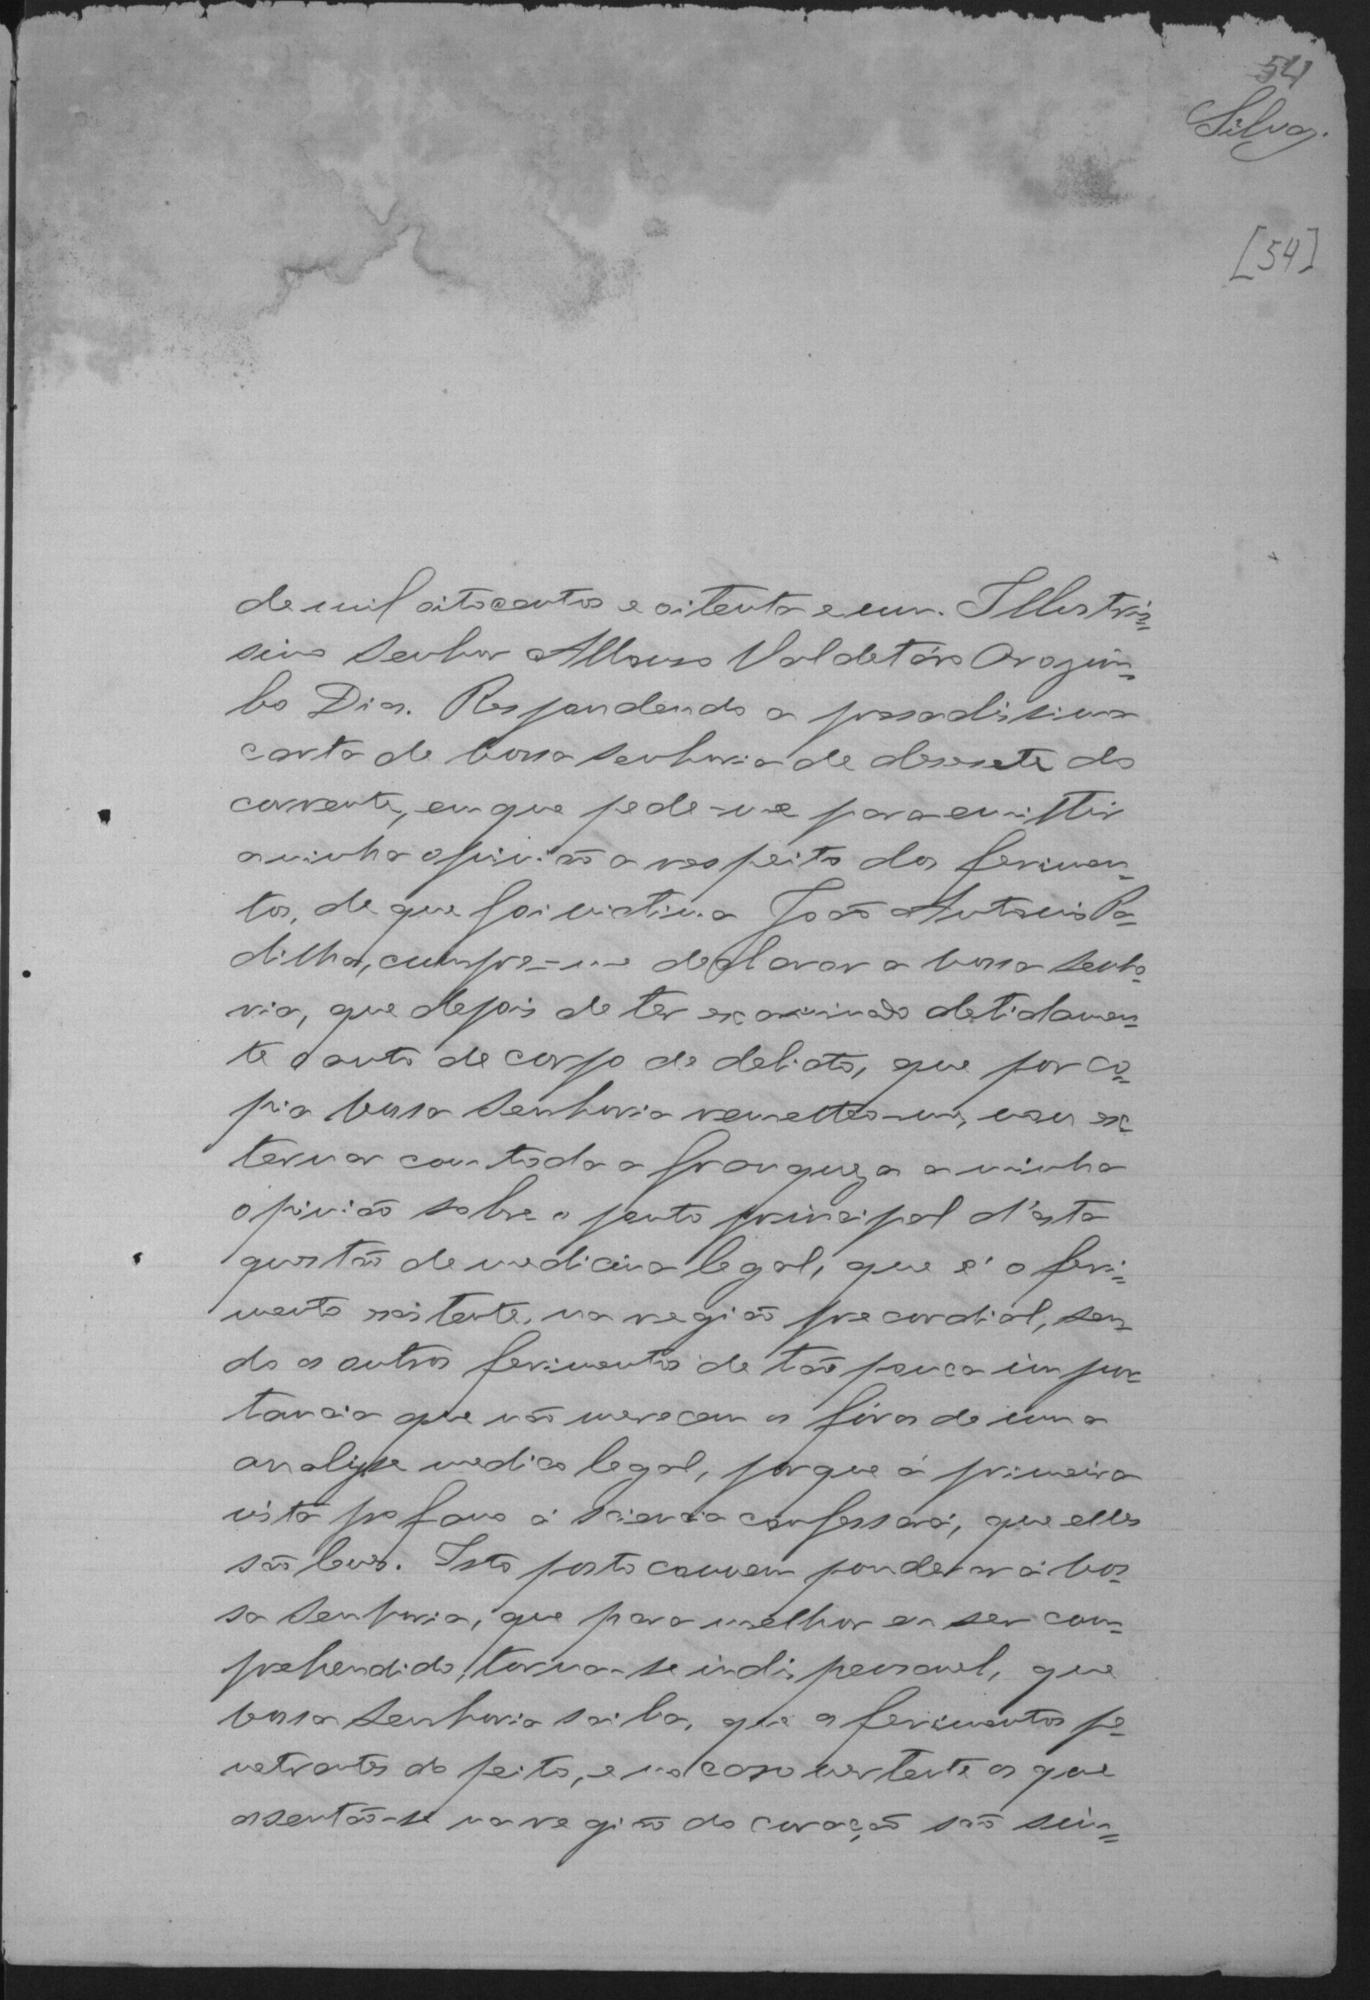 54
Silva.
[54]
de mil oitocentos e oitenta e um. Illustris=
simo Senhor Affonso Valdetáro Orozim=
bo Dias. Respondendo a presadissima
carta de vossa senhoria de desesete do
corrente, em que pede-me para emittir
a minha opinião a respeito dos ferimen=
tos, de que foi victima João Antonio Pa=
dilha, cumpre-me declarar a vossa senho=
ria, que depois de ter examinado detidamen=
te o auto de corpo de delicto, que por co=
pia vossa senhoria remetteo-me, vou ex=
ternar com toda a franqueza a minha
opinião sobre o ponto principal d'esta
questão de medicina legal, que é o feri=
mento existente na região precordial, sen=
do os outros ferimentos de tão pouca impor=
tancia que não merecem os fóros de uma
analyse medico legal, porque á primeira
vista profano á sciencia confessará, que elles
são leves. Isto posto convem ponderar á vos=
sa senhoria, que para melhor eu ser com=
prehendido, torna-se indispensavel, que
vossa senhoria saiba, que os ferimentos pe=
netrantes do peito, e no caso vertente os que
assentão-se na região do coração são sim=